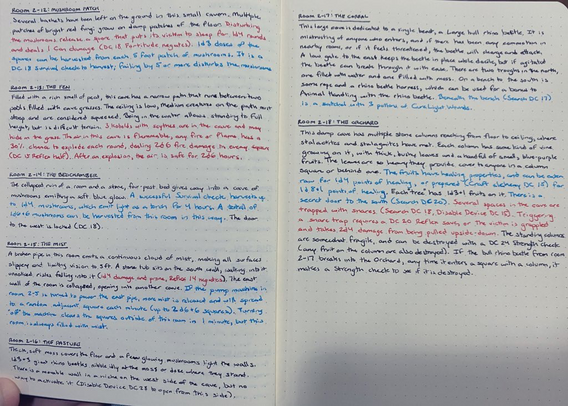 ROOM 2-12: MUSHROOM PATCH
Several baskets have been left on the ground in this small cavern. Multiple
patches of bright red fungi grow on damp patches of the floor. Disturbing
the mushrooms release a spore that puts its victim to sleep for 1d4 rounds
and deals 1 Con damage (DC 18 Fortitude negates). 1d3 doses of the
spores can be harvested from each 5 foot patch of mushrooms. It is a
DC 13 Survival check to harvest; failing by 5 or more disturbs the mushrooms
ROOM 2-13: THE FEN
Filled with a rich smell of peat, this cave has a narrow path that runs between
pools filled with cave grasses. The ceiling is low, medium creatures on the path must
stoop and are considered squeezed. Being in the water allows standing to full
height but is difficult terrain. 3 kobolds with are in the cave and may
hide in the grass. The air in this cave is flammable, any fire or flame has a
30% chance to explode each round, dealing 2d6 fire damage in every square
(DC 15 Reflex half). After an explosion, the air is safe for 2d6 hours.
ROOM 2-14: THE BEDCHAMBER
The collapsed ruin of a room and a stone, four-post bed gives way into a cave of
mushrooms emitting a soft blue glow. A successful Survival check harvests up
to 1d4 mushrooms, which emit light as a torch for 4 hours. A total of
mushrooms can be harvested from this room in this way. The door
to the west is locked (DC 18).
ROOM 2-15: THE MIST
A broken pipe in this room emits a continuous cloud of mist, making all surfaces
slippery and limiting vision to 5ft. A stone tub sits on the south wall, walking into it
unaided risks falling into it (1d3 damage and prone, Reflex 14 negates). The east
wall of the room is collapsed, opening into another cave. If the pump machine in
room 2-5 is turned to power the east pipe, more mist is released and will spread
to a random adjacent square each minute (up to 2d6+6 squares). Turning
off the machine clears the squares outside of this room in 1 minute, but this
room is always filled with mist.
ROOM 2-16: THE PASTURE
Thick, soft moss covers the floor and a few glowing mushrooms light the walls.
1d3+3 giant rhino beetles nibble idly at the moss or doze where they stand.
There is a movable wall in a niche on the west side of the cave, but no
way to activate it (Disable Device DC 28 to open from this side).
ROOM 2-17: THE CORRAL
This large room is dedicated to a single beast, a large bull rhino beetle. It is
mistrusting of anyone who enters, and if there has been any commotion in
nearby room, or if it feels threatened, the beetle will charge and attack.
A low gate to the east keeps the beetle in place while docile, but if agitated
the beetle can break through it with ease. There are two troughs in the north,
one filled with water and one filled with moss. On a bench to the south is
some rope and a rhino beetle harness, which can be used for a bonus to
Animal Handling with the rhino beetle. Beneath the bench (Search DC 17)
is a satchel with 3 potions of Cure Light Wounds.
ROOM 2-18: THE ORCHARD
This damp cave has multiple stone columns reaching from floor to ceiling, where
stalactites and stalagmites have met. Each column has some kind of vine
growing on it, with thick, bushy leaves and a handful of small, blue-purple
fruits. The leaves are so heavy they provide cover to anyone in a column
square or behind one. The fruits have healing properties, and can be eaten
raw for 1d4 points of healing, or prepared (Craft alchemy DC 15) for
1d8+1 points of healing. Each tree has 1d3+1 fruits on it. There is a
secret door to the south (Search DC 20). Several spaces in the cave are
trapped with snares (Search DC 18, Disable Device DC 15). Triggering
a snare trap requires a DC 20 Reflex save, or the victim is grappled
and takes 2d4 damage from being pulled upside-down. The standing columns
are somewhat fragile, and can be destroyed with a DC 24 Strength check
(any fruit on the column are also destroyed). If the bull rhino beetle from room
2-17 breaks into the Orchard, any time it enters a square with a column, it
makes a Strength check to see if it is destroyed.